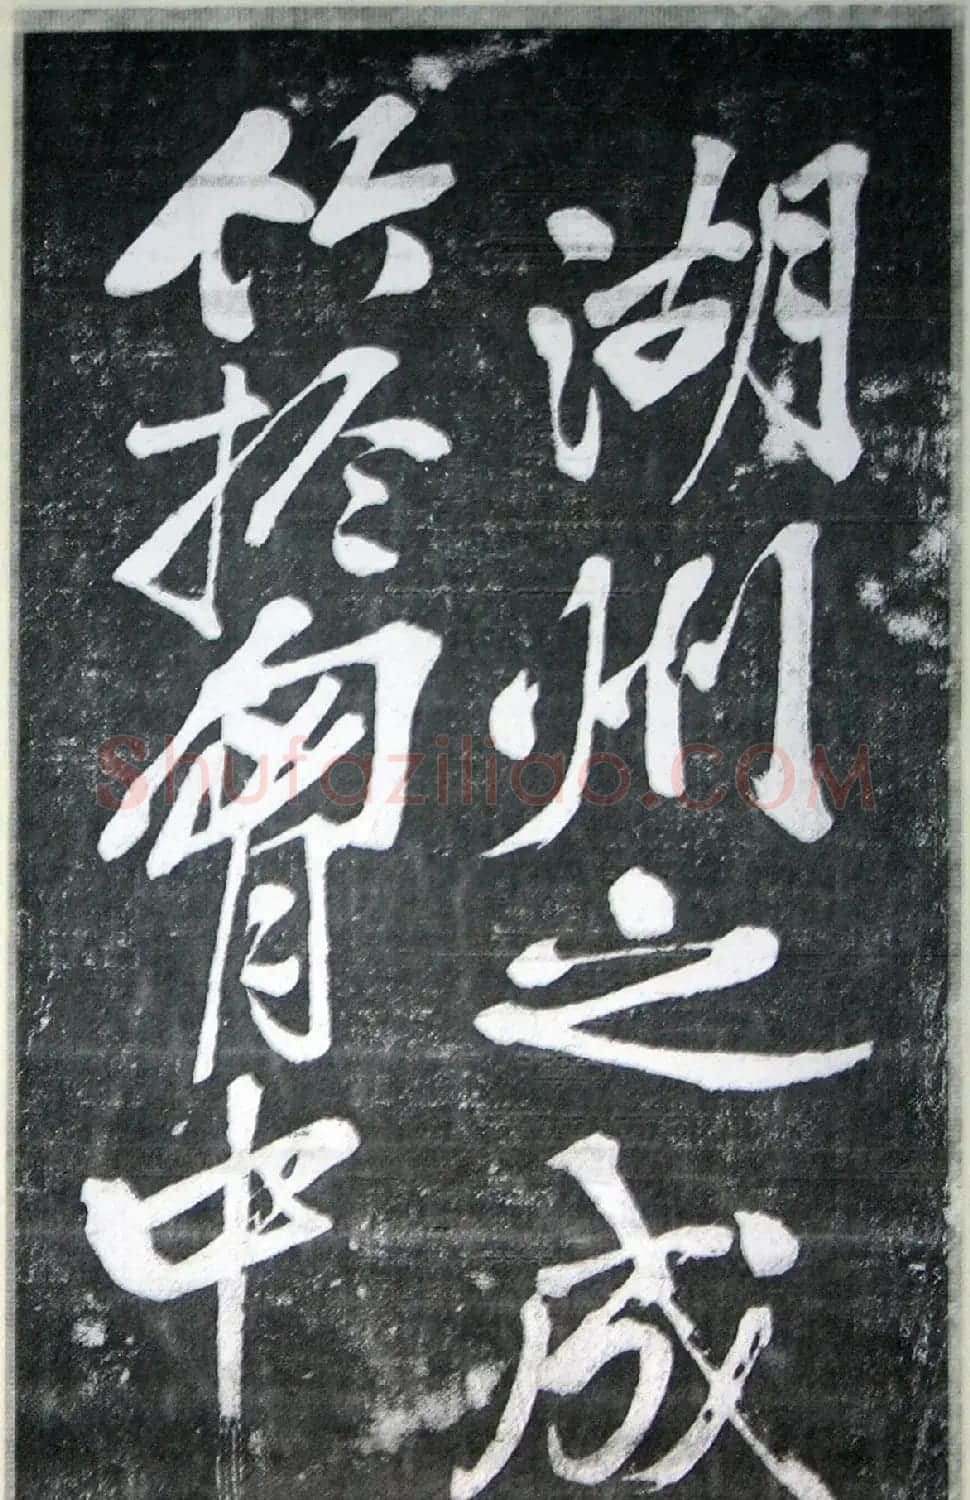 湖州之成
竹扵胷中
Shufaziliao.COM